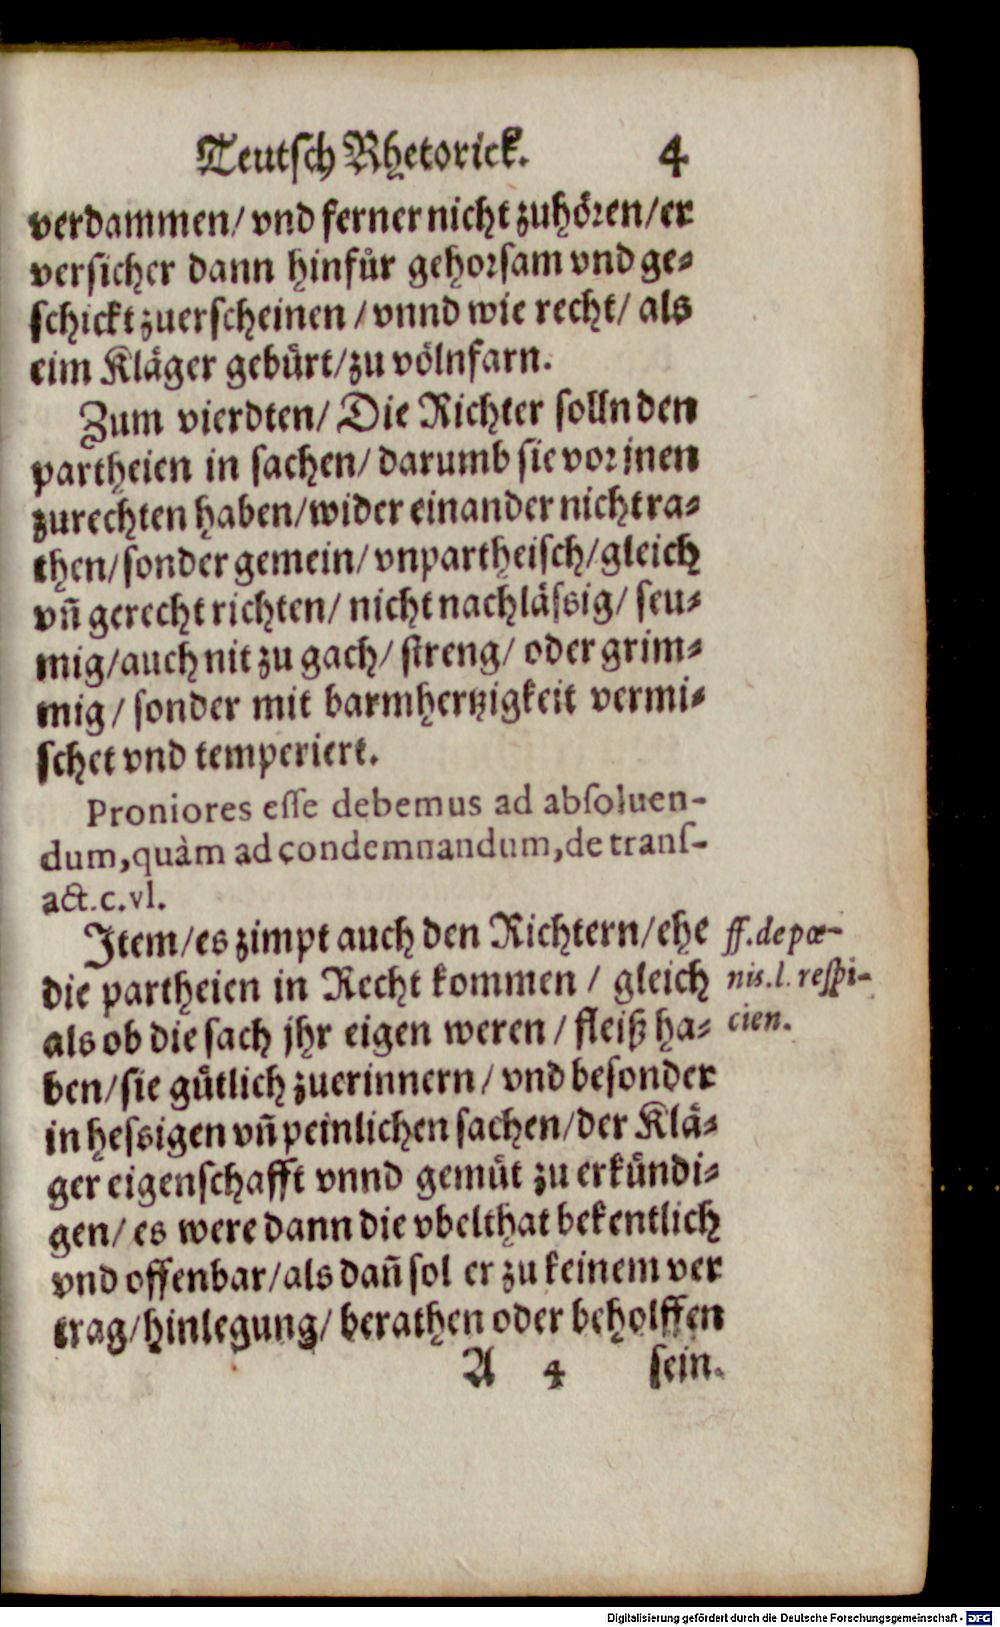 Teutsch Rhetorick. 4
verdammen/ vnd ferner nicht zuhören/ er
versicher dann hinfür gehorsam vnd ge-
schickt zuerscheinen / vnnd wie recht/ als
eim Kläger gebürt/ zu völnfarn.
Zum vierdten/ Die Richter solln den
partheien in sachen/ darumb sie vor jnen
zurechten haben/ wider einander nicht ra-
then/ sonder gemein/ vnpartheisch/ gleich
vñ gerecht richten/ nicht nachlässig/ seu-
mig/ auch nit zu gach/ streng/ oder grim-
mig/ sonder mit barmhertzigkeit vermi-
schet vnd temperiert.
Proniores esse debemus ad absoluen-
dum, quàm ad condemnandum, de trans-
act. c. vl.
Item/ es zimpt auch den Richtern/ ehe
die partheien in Recht kommen / gleich
als ob die sach jhr eigen weren / fleiß ha-
ben/ sie gütlich zuerinnern/ vnd besonder
in hessigen vñ peinlichen sachen/ der Klä-
ger eigenschafft vnnd gemüt zu erkündi-
gen/ es were dann die vbelthat bekentlich
vnd offenbar/ als dañ sol er zu keinem ver
trag/ hinlegung/ berathen oder beholffen
A 4 sein.
ff. de pœ-
nis. l. respi-
cien.
Digitalisierung gefördert durch die Deutsche Forschungsgemeinschaft - DFG